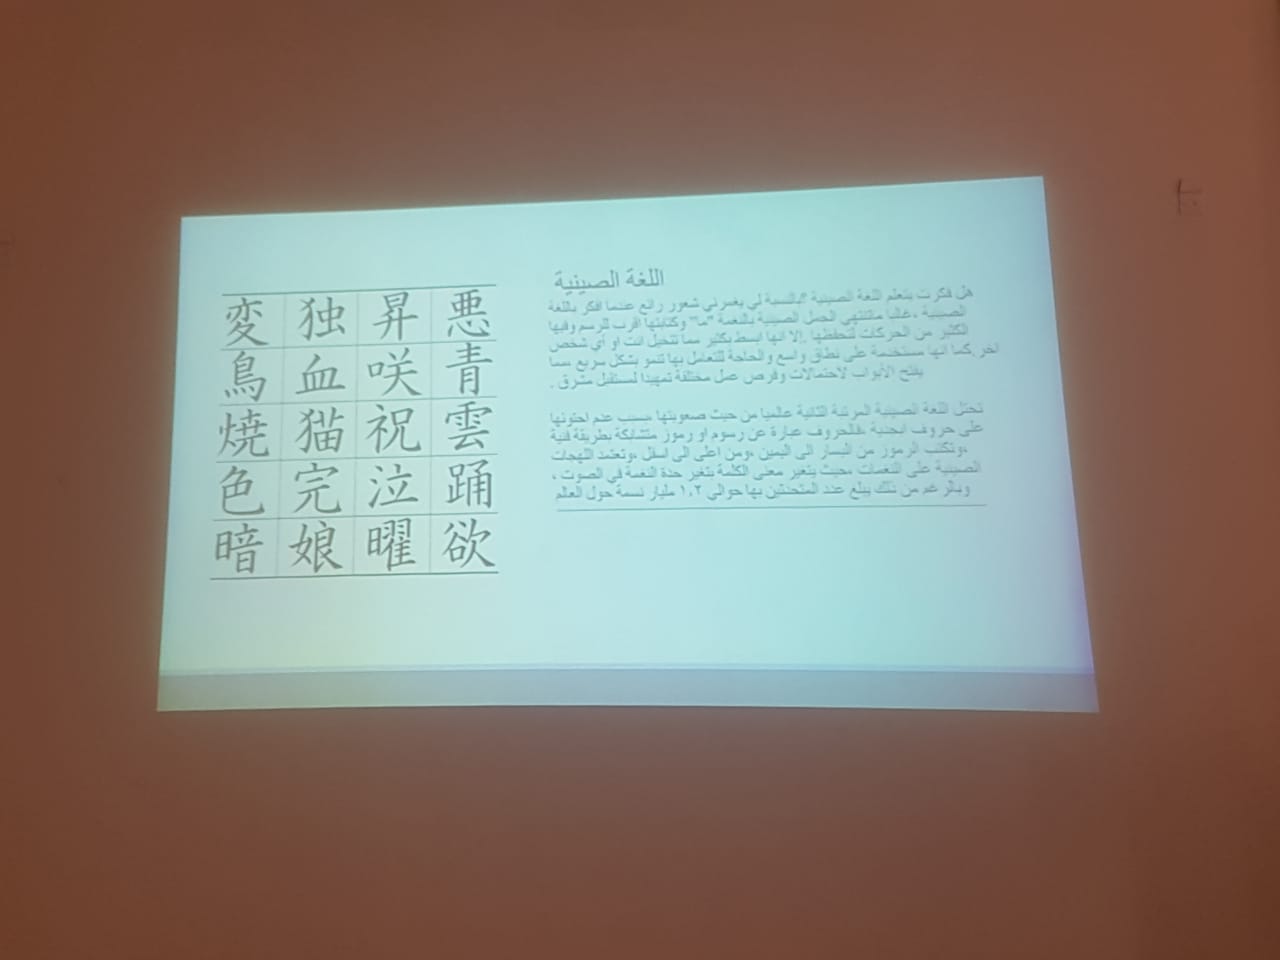 変 独 昇 悪
鳥 血 咲 青
焼 猫 祝 雲
色 完 泣 踊
暗 娘 曜 欲
اللغة الصينية
هل فكرت بتعلم اللغة الصينية ؟بالنسبة لي يغمرني شعور رائع عندما افكر باللغة
الصينية ، غالبا ماتنتهي الجمل الصينية بالنغمة "ما" وكتابتها اقرب للرسم وفيها
الكثير من الحركات لتحفظها .إلا انها ابسط بكثير مما تتخيل انت او أي شخص
اخر .كما انها مستخدمة على نطاق واسع والحاجة للتعامل بها تنمو بشكل سريع ،مما
يفتح الأبواب لاحتمالات وفرص عمل مختلفة تمهيدا لمستقبل مشرق .
تحتل اللغة الصينية المرتبة الثانية عالميا من حيث صعوبتها ،بسبب عدم احتوئها
على حروف ابجدية ،فالحروف عبارة عن رسوم او رموز متشابكة بطريقة فنية
،وتكتب الرموز من اليسار الى اليمين ،ومن اعلى الى اسفل ،وتعتمد اللهجات
الصينية على النغمات ،بحيث يتغير معنى الكلمة بتغير حدة النغمة في الصوت ،
وبالرغم من ذلك يبلغ عدد المتحدثين بها حوالي ١،٢ مليار نسمة حول العالم